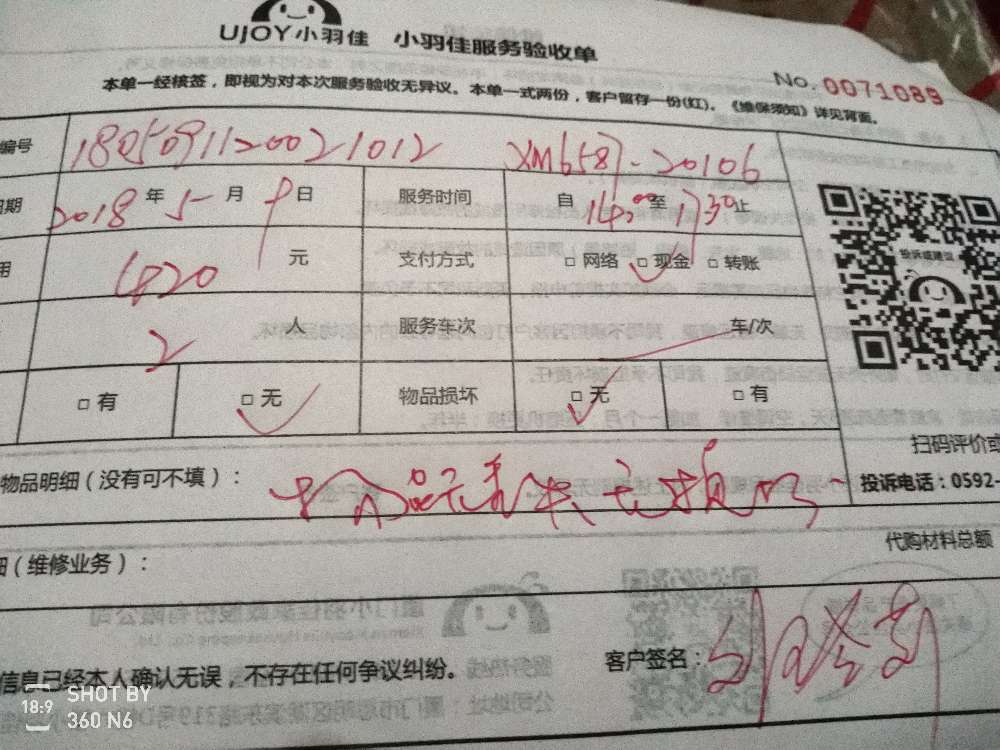 UJOY小羽佳 小羽佳服务验收单
No. 0071089
本单一经核签，即视为对本次服务验收无异议。本单一式两份，客户留存一份(红)。《维保须知》详见背面。
编号 180509112002 1012 XM6587-20106
期 2018年5月9日 服务时间 自14:00至17:30止
用 420元 支付方式 □网络 □现金 □转账
2人 服务车次 车/次
□有 □无 物品损坏 □无 □有
扫码评价或
物品明细（没有可不填）：
投诉电话：0592-
代购材料总额
细（维修业务）：
信息已经本人确认无误，不存在任何争议纠纷。 客户签名：
SHOT BY
360 N6
18:9